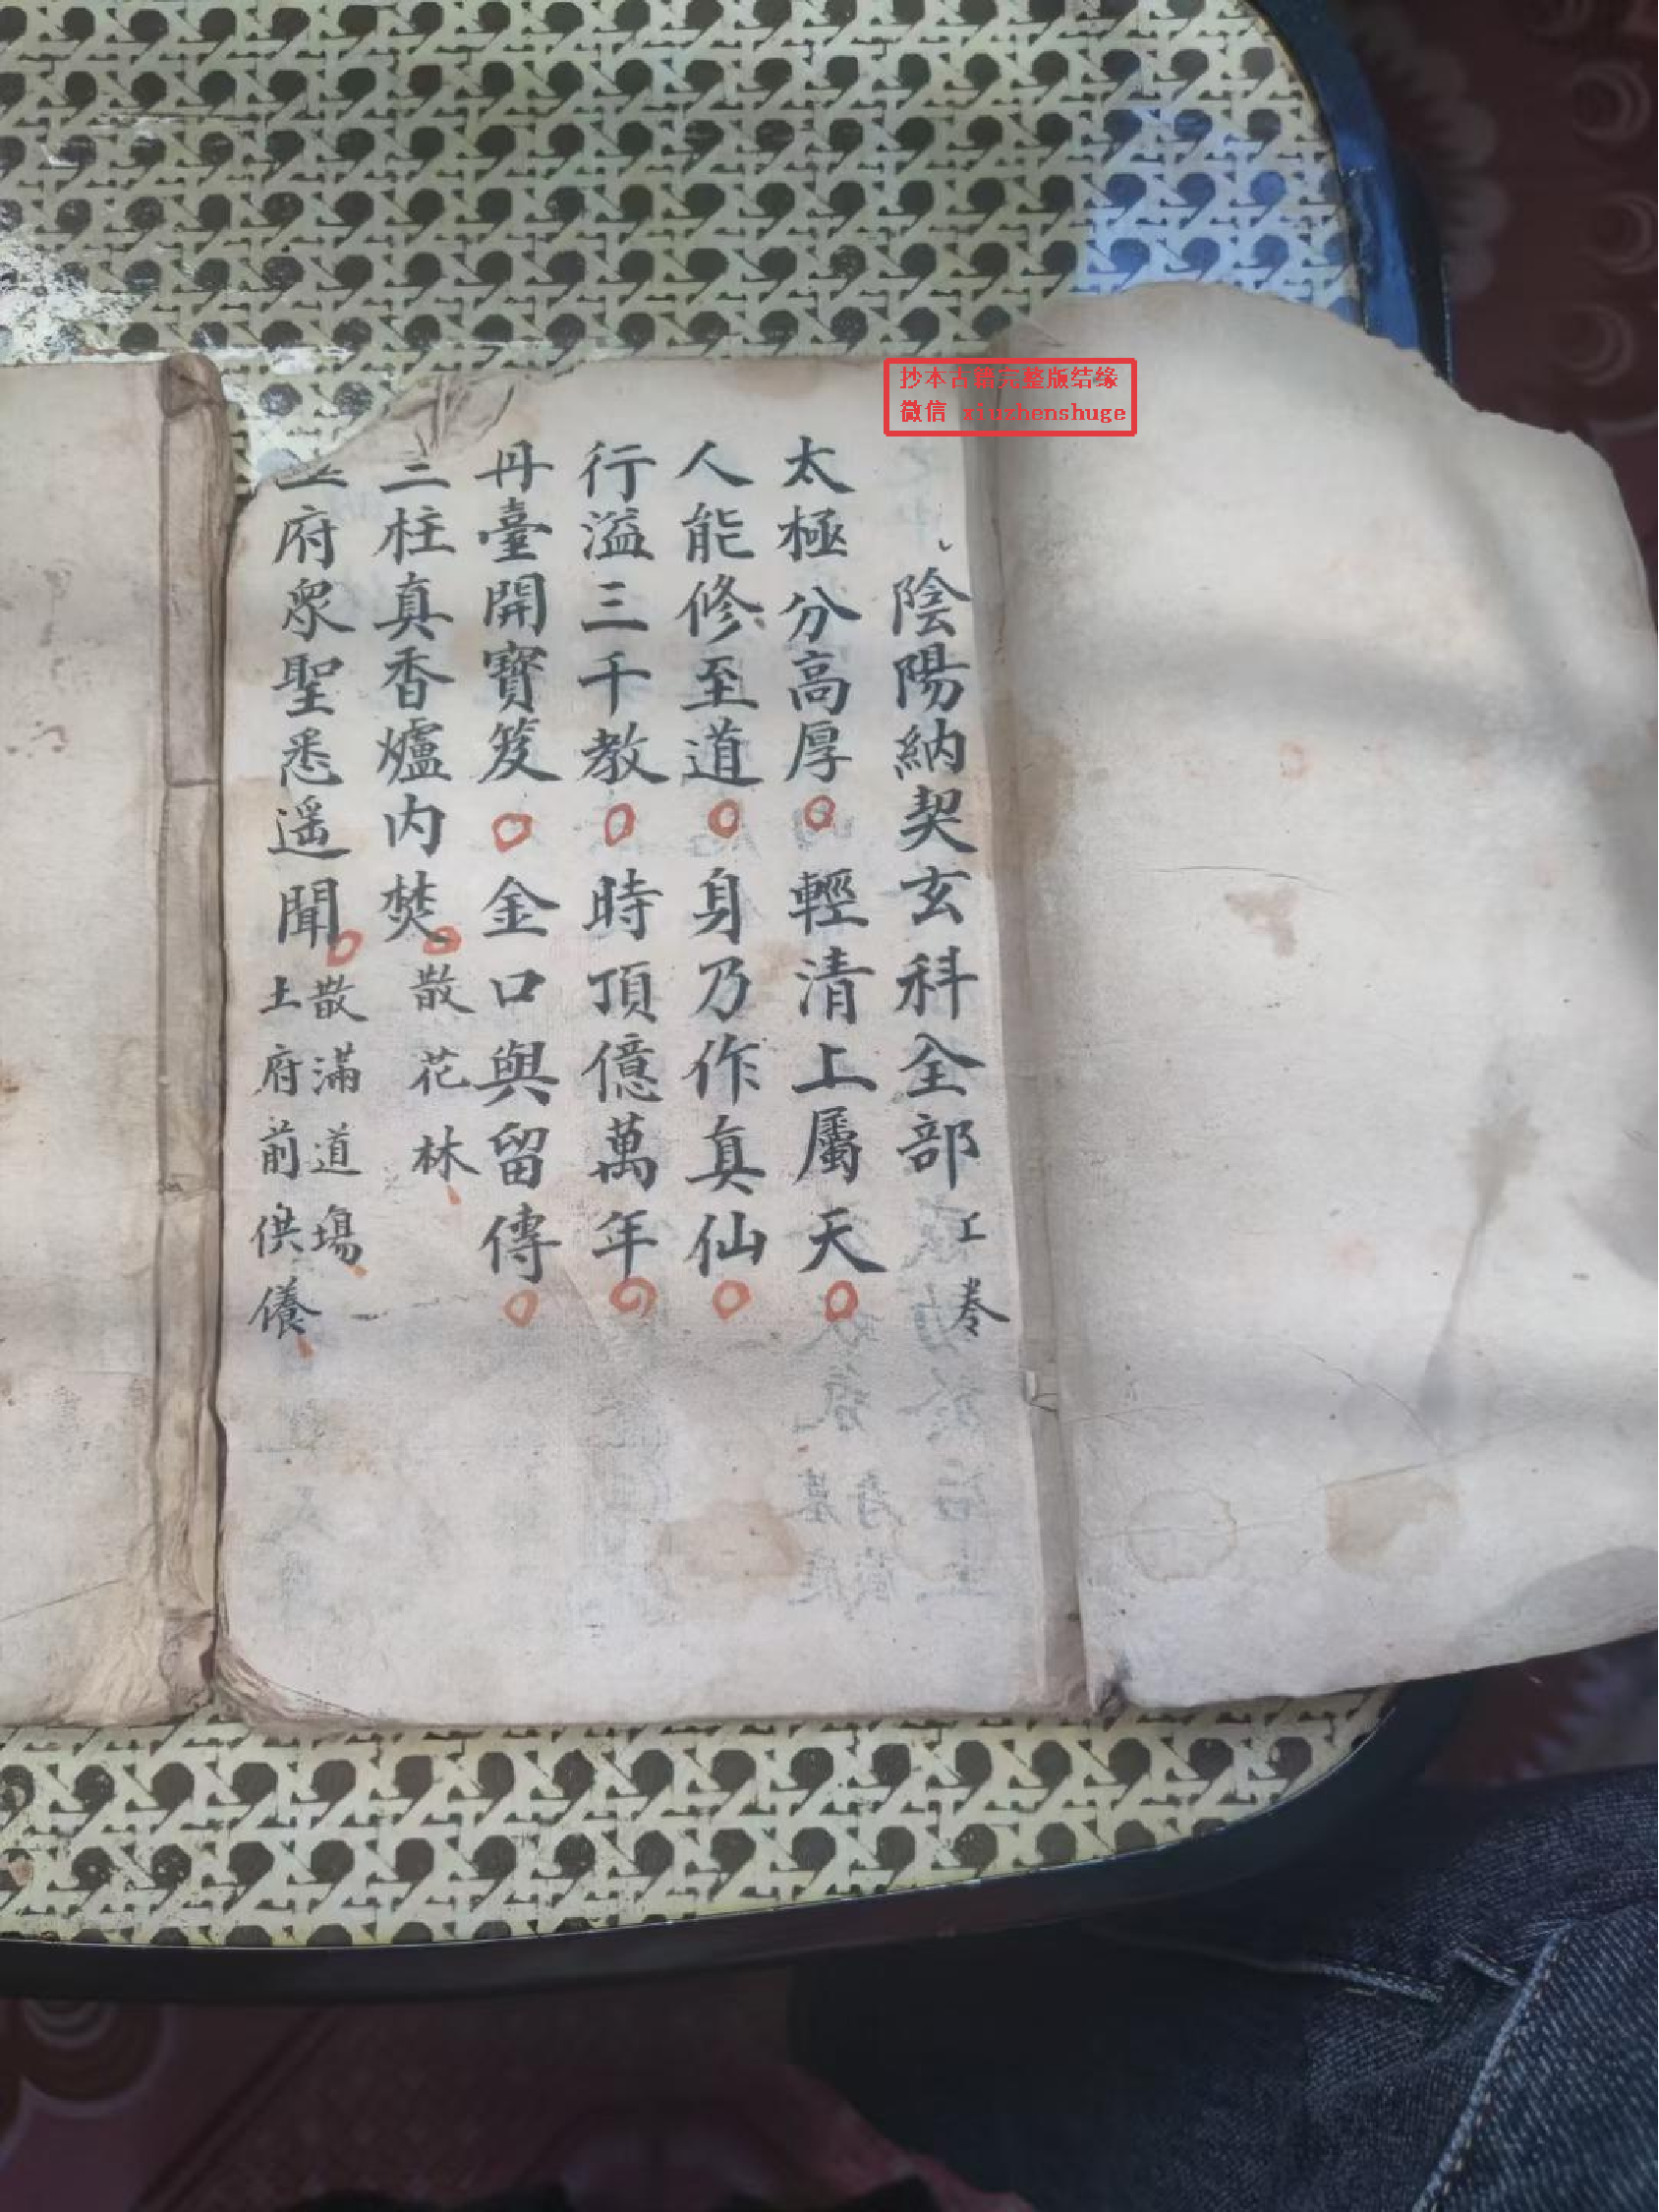 抄本古籍完整版结缘
微信 xiuzhenshuge
陰陽納契玄科全部 上卷
太極分高厚○輕清上屬天○
人能修至道○身乃作真仙○
行溢三千教○時頂億萬年○
丹臺開寶笈○金口與留傳○
三柱真香爐內焚○散花林
府眾聖悉遥聞○散滿道場
土府前供養